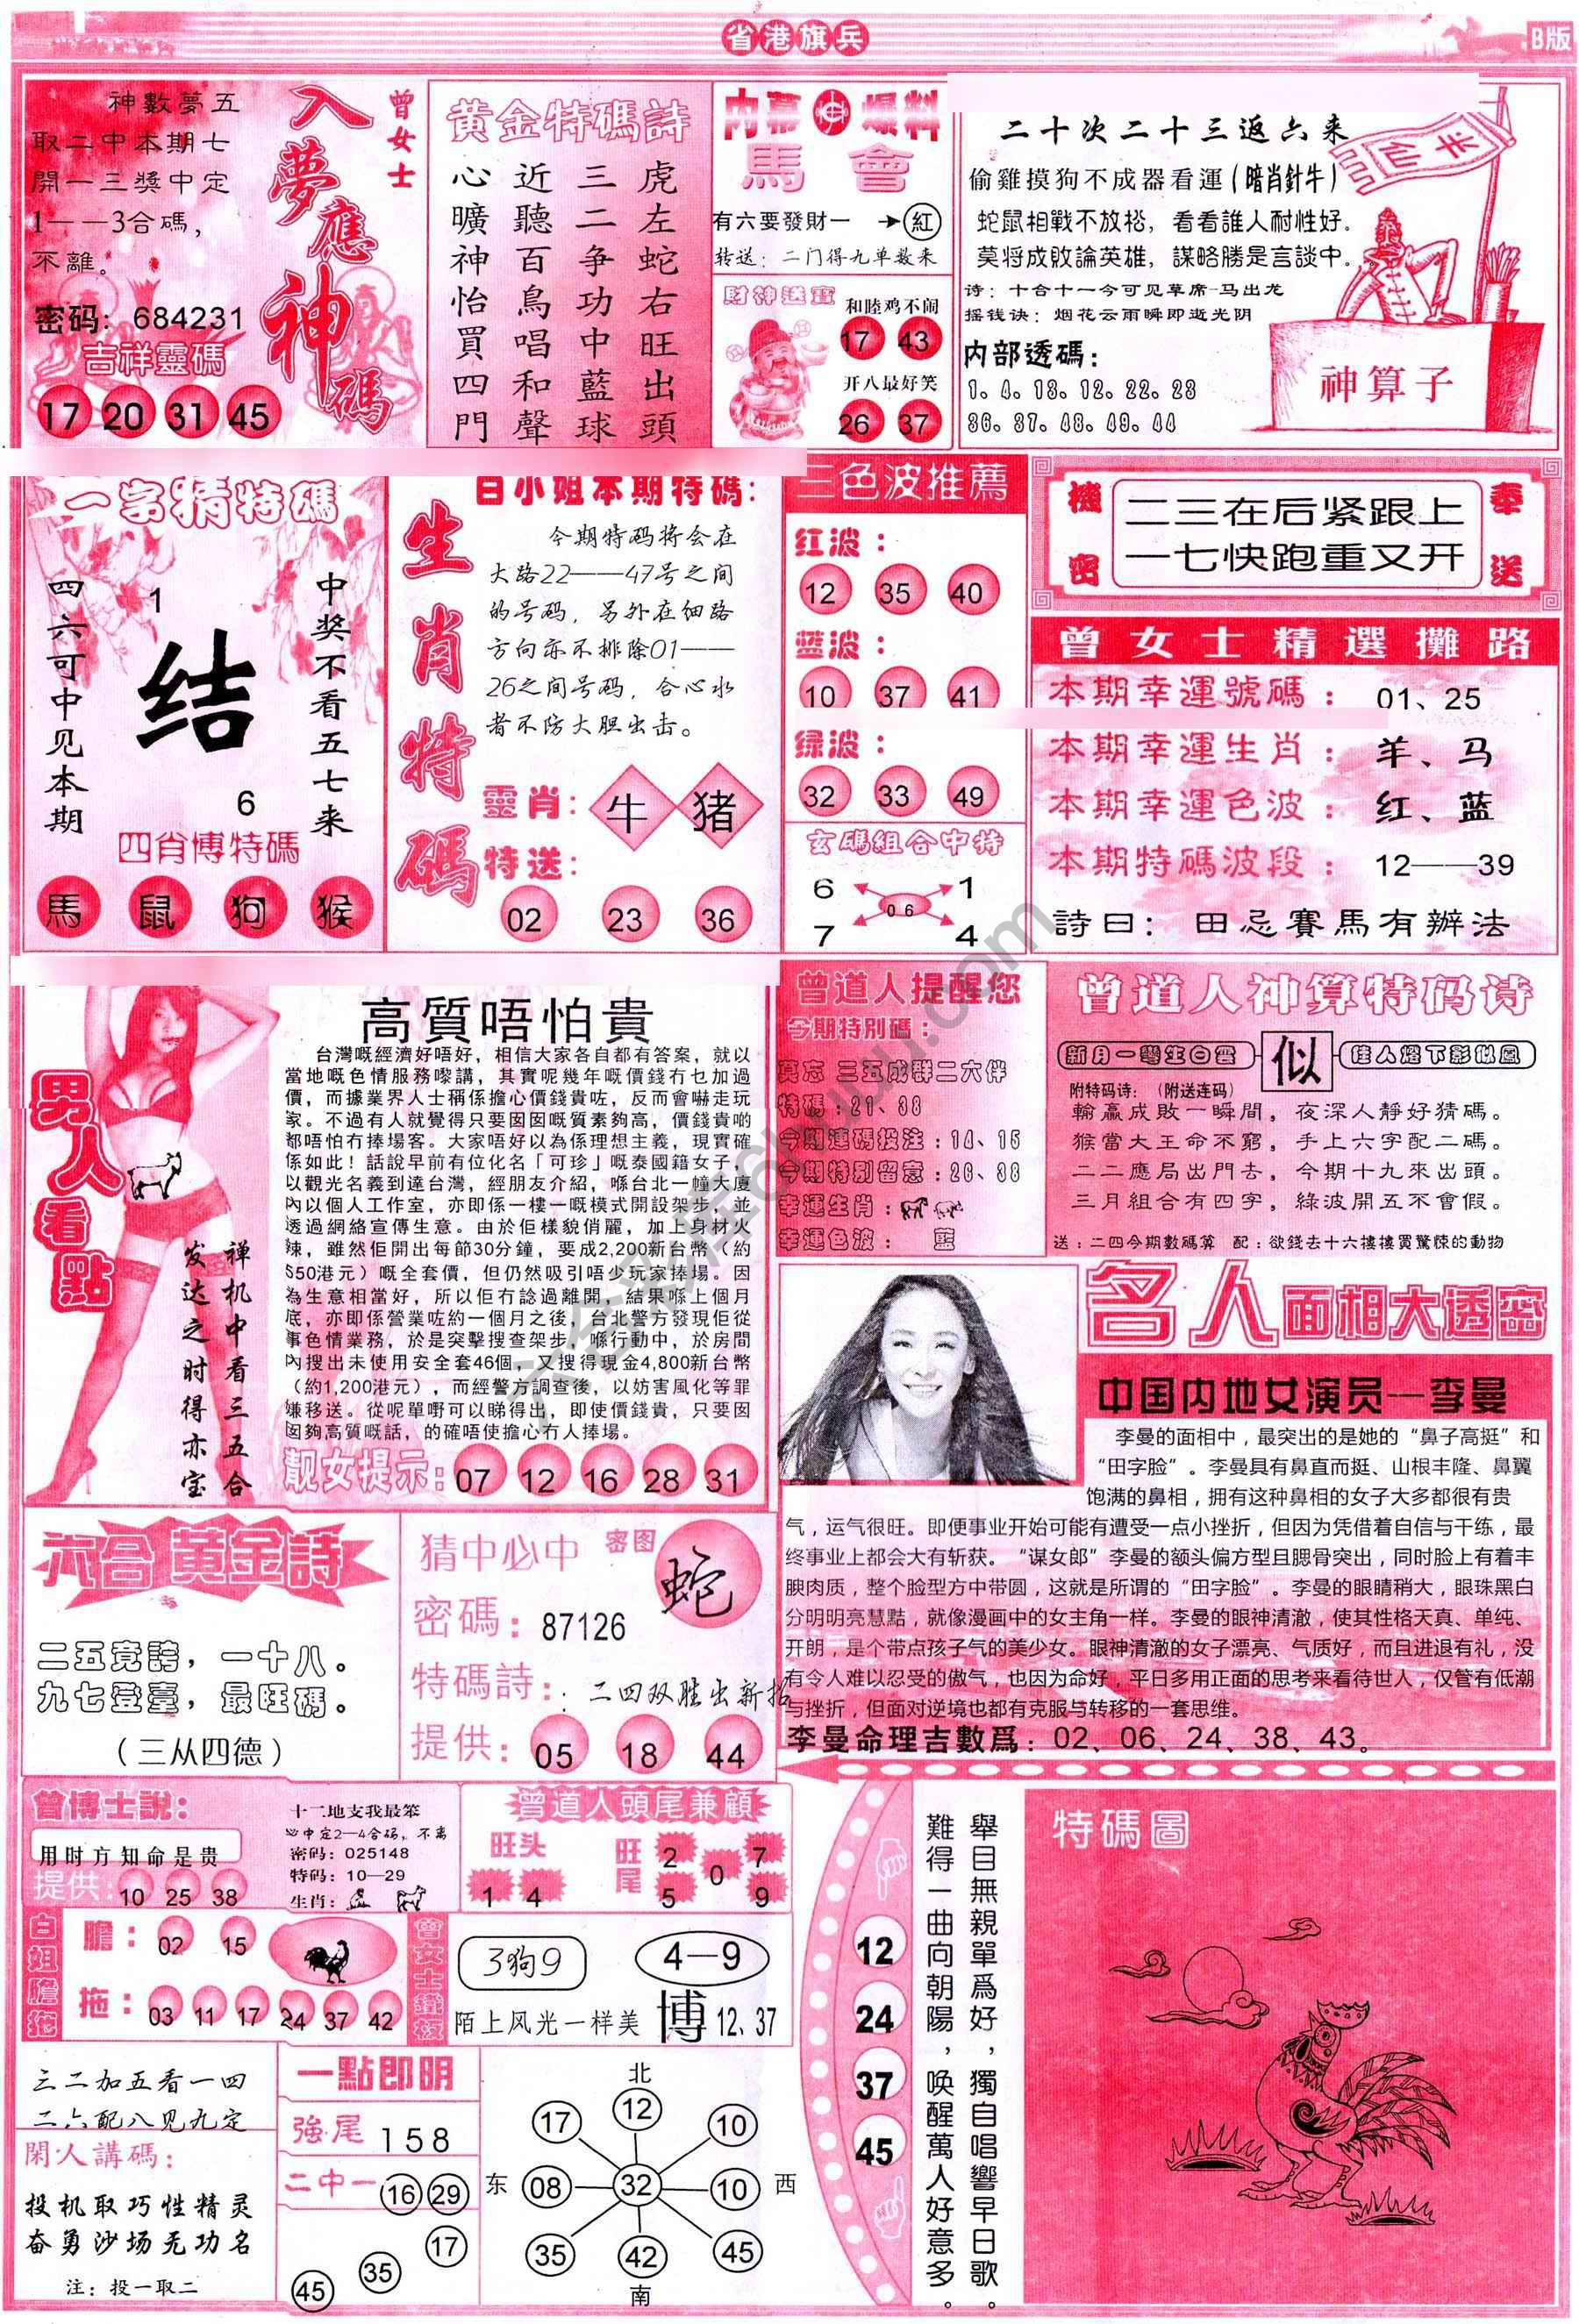 省港旗兵
B版
神數夢五
取二中本期七
開一三獎中定
1——3合碼，
不離。
密码：684231
吉祥靈碼
17 20 31 45
入夢應神碼
曾女士
黄金特碼詩
心近三虎
曠聽二左
神百争蛇
怡鳥功右
買唱中旺
四和藍出
門聲球頭
内幕爆料
馬會
有六要發財一→紅
转送：二门得九单数来
財神送寶
和睦鸡不闹
17 43
开八最好笑
26 37
二十次二十三返六来
偷雞摸狗不成器看運(暗肖針牛)
蛇鼠相戰不放松，看看誰人耐性好。
莫将成敗論英雄，謀略勝是言談中。
诗：十合十一今可见草席-马出龙
摇钱诀：烟花云雨瞬即逝光阴
内部透碼：
1。4。18。12。22。28
36。37。48。49。44
半仙
神算子
一字猜特碼
四六可中见本期
1
结
6
中奖不看五七来
四肖博特碼
馬 鼠 狗 猴
生肖特碼
白小姐本期特碼：
今期特码将会在
大路22——47号之间
的号码，另外在细路
方向亦不排除01——
26之间号码，合心水
者不防大胆出击。
靈肖：牛 猪
特送：
02 23 36
三色波推薦
红波：
12 35 40
蓝波：
10 37 41
绿波：
32 33 49
玄碼組合中特
6 1
06
7 4
機密
二三在后紧跟上
一七快跑重又开
奉送
曾女士精選攤路
本期幸運號碼：01、25
本期幸運生肖：羊、马
本期幸運色波：红、蓝
本期特碼波段：12——39
詩曰：田忌賽馬有辦法
男人看點
禅机中看三五合
发达之时得亦宝
高質唔怕貴
台灣嘅經濟好唔好，相信大家各自都有答案，就以
當地嘅色情服務嚟講，其實呢幾年嘅價錢冇乜加過
價，而據業界人士稱係擔心價錢貴咗，反而會嚇走玩
家。不過有人就覺得只要囡囡嘅質素夠高，價錢貴啲
都唔怕冇捧場客。大家唔好以為係理想主義，現實確
係如此！話說早前有位化名「可珍」嘅泰國籍女子，
以觀光名義到達台灣，經朋友介紹，喺台北一幢大廈
內以個人工作室，亦即係一樓一嘅模式開設架步，並
透過網絡宣傳生意。由於佢樣貌俏麗，加上身材火
辣，雖然佢開出每節30分鐘，要成2,200新台幣（約
550港元）嘅全套價，但仍然吸引唔少玩家捧場。因
為生意相當好，所以佢冇諗過離開，結果喺上個月
底，亦即係營業咗約一個月之後，台北警方發現佢從
事色情業務，於是突擊搜查架步，喺行動中，於房間
內搜出未使用安全套46個，又搜得現金4,800新台幣
（約1,200港元），而經警方調查後，以妨害風化等罪
嫌移送。從呢單嘢可以睇得出，即使價錢貴，只要囡
囡夠高質嘅話，的確唔使擔心冇人捧場。
靓女提示：07 12 16 28 31
曾道人提醒您
今期特别碼：
莫忘 三五成群二六伴
特碼：21、38
今期連碼投注：14、15
今期特别留意：26、38
幸運生肖：
幸運色波： 藍
曾道人神算特码诗
新月一彎生白雲 似 佳人燈下影似鳳
附特码诗：（附送连码）
輸赢成敗一瞬間，夜深人靜好猜碼。
猴當大王命不窮，手上六字配二碼。
二二應局出門去，今期十九來出頭。
三月組合有四字，綠波開五不會假。
送：二四今期數碼算 配：欲錢去十六樓樓買驚悚的動物
名人面相大透密
中国内地女演员—李曼
李曼的面相中，最突出的是她的“鼻子高挺”和
“田字脸”。李曼具有鼻直而挺、山根丰隆、鼻翼
饱满的鼻相，拥有这种鼻相的女子大多都很有贵
气，运气很旺。即便事业开始可能有遭受一点小挫折，但因为凭借着自信与干练，最
终事业上都会大有斩获。“谋女郎”李曼的额头偏方型且腮骨突出，同时脸上有着丰
腴肉质，整个脸型方中带圆，这就是所谓的“田字脸”。李曼的眼睛稍大，眼珠黑白
分明明亮慧黠，就像漫画中的女主角一样。李曼的眼神清澈，使其性格天真、单纯、
开朗，是个带点孩子气的美少女。眼神清澈的女子漂亮、气质好，而且进退有礼，没
有令人难以忍受的傲气，也因为命好，平日多用正面的思考来看待世人，仅管有低潮
与挫折，但面对逆境也都有克服与转移的一套思维。
李曼命理吉數爲：02、06、24、38、43。
六合黄金詩
二五竞誇，一十八。
九七登臺，最旺碼。
（三从四德）
猜中必中
密图
蛇
密碼：87126
特碼詩：二四双胜出新招
提供：05 18 44
曾博士說：
用时方知命是贵
提供：10 25 38
十二地支我最笨
必中定2—4合码，不离
密码：025148
特码：10—29
生肖：
曾道人頭尾兼顧
旺头
1 4
旺尾
2 7
0
5 9
白姐膽拖
膽：02 15
拖：03 11 17 24 37 42
曾女士鐵板
3狗9
4—9
陌上风光一样美 博 12、37
三二加五看一四
二六配八见九定
閑人講碼：
投机取巧性精灵
奋勇沙场无功名
注：投一取二
一點即明
強尾 158
二中一 16 29
17
35
45
北
17 12 10
东 08 32 10 西
35 42 45
南
12
24
37
45
舉目無親單爲好，獨自唱響早日歌。
難得一曲向朝陽，唤醒萬人好意多。
特碼圖